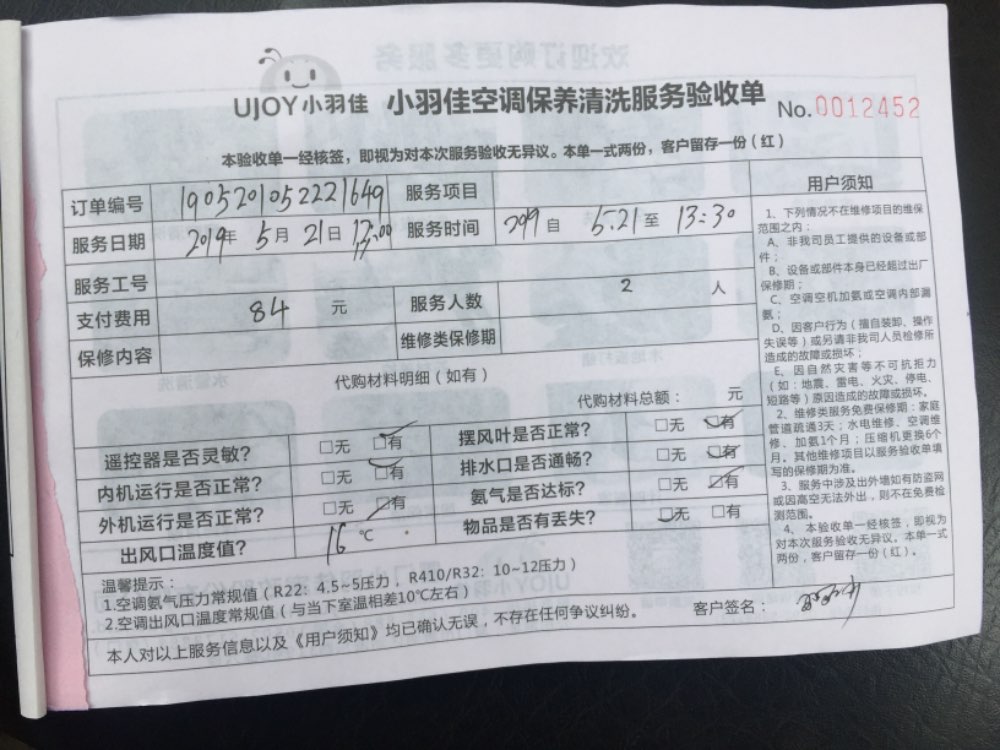 UJOY小羽佳 小羽佳空调保养清洗服务验收单 No.0012452
本验收单一经核签，即视为对本次服务验收无异议。本单一式两份，客户留存一份（红）
订单编号 1905201052221649 服务项目
服务日期 2019年 5月 21日 服务时间 2019自 5.21至 13:30
服务工号
支付费用 84 元 服务人数 2 人
保修内容 维修类保修期
代购材料明细（如有）
代购材料总额： 元
遥控器是否灵敏? □无 □有 摆风叶是否正常? □无 □有
内机运行是否正常? □无 □有 排水口是否通畅? □无 □有
外机运行是否正常? □无 □有 氨气是否达标? □无 □有
出风口温度值? 16 ℃ 物品是否有丢失? □无 □有
温馨提示：
1.空调氨气压力常规值（R22：4.5~5压力，R410/R32：10~12压力）
2.空调出风口温度常规值（与当下室温相差10℃左右）
客户签名：
本人对以上服务信息以及《用户须知》均已确认无误，不存在任何争议纠纷。
用户须知
1、下列情况不在维修项目的维保
范围之内：
A、非我司员工提供的设备或部
件；
B、设备或部件本身已经超过出厂
保修期；
C、空调空机加氨或空调内部漏
氨；
D、因客户行为（擅自装卸、操作
失误等）或另请非我司人员检修所
造成的故障或损坏；
E、因自然灾害等不可抗拒力
（如：地震、雷电、火灾、停电、
短路等）原因造成的故障或损坏。
2、维修类服务免费保修期：家庭
管道疏通3天；水电维修、空调维
修、加氨1个月；压缩机更换6个
月。其他维修项目以服务验收单填
写的保修期为准。
3、服务中涉及出外墙如有防盗网
或因高空无法外出，则不在免费检
测范围。
4、本验收单一经核签，即视为
对本次服务验收无异议。本单一式
两份，客户留存一份（红）。